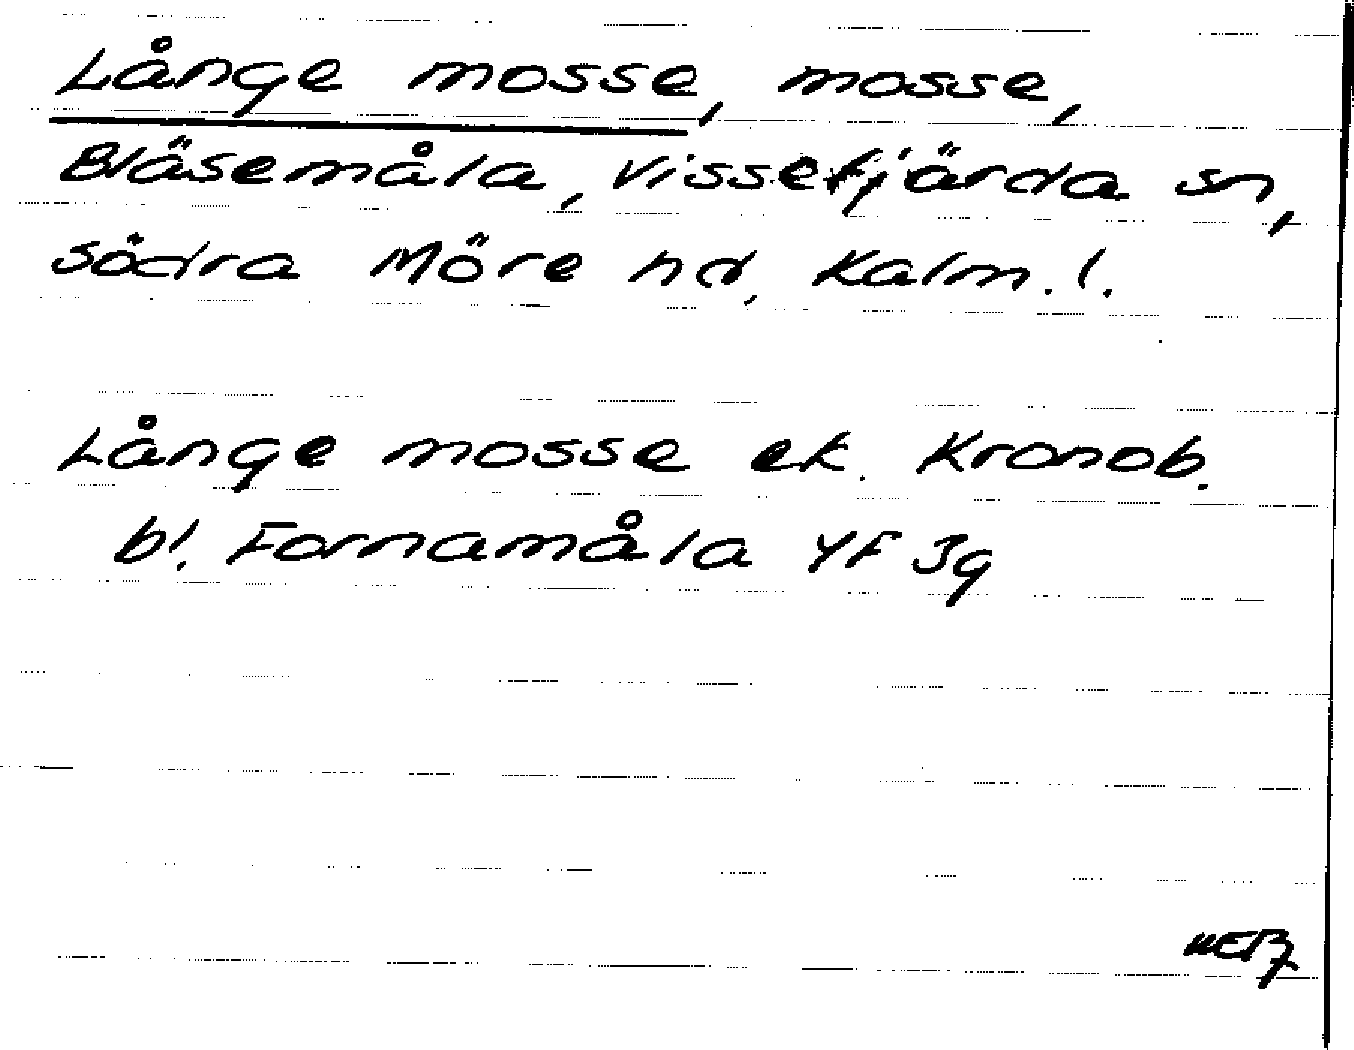 Långe mosse, mosse,
Bläsemåla, Vissefjärda sn,
södra Möre hd, Kalm. l.
Långe mosse ek. Kronob.
bl. Fornamåla YF 3g